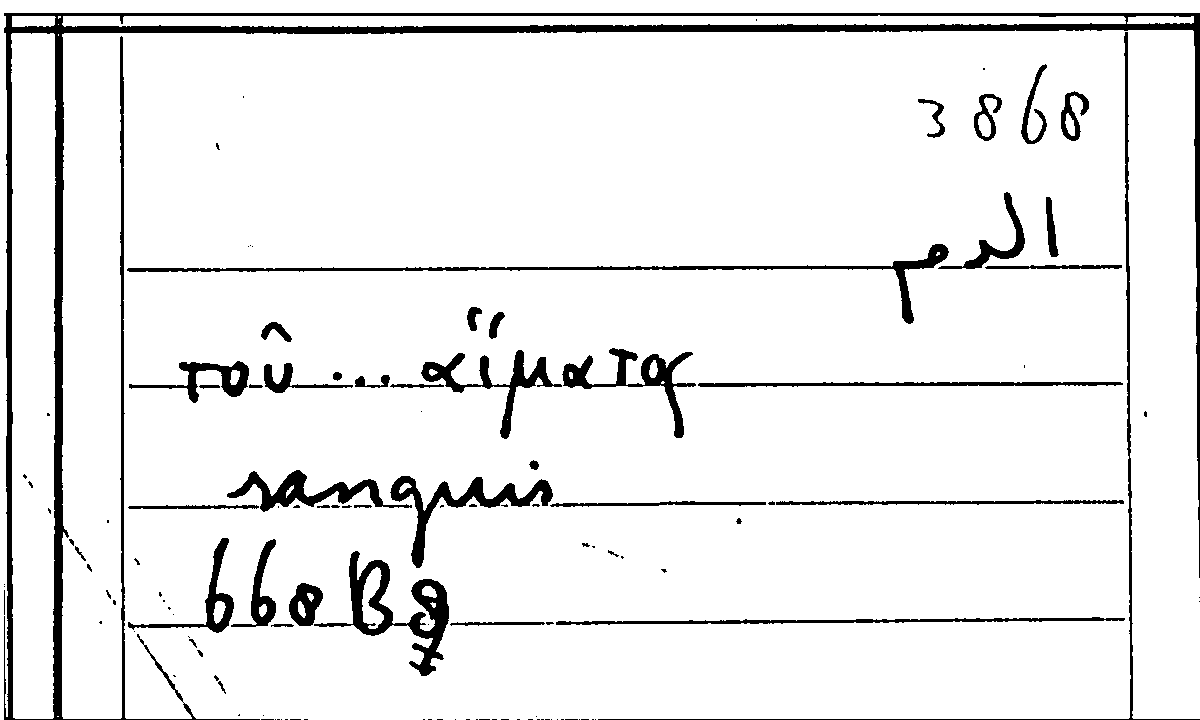 3868
الدم
τοῦ ... αἵματος
sanguis
668 B 8